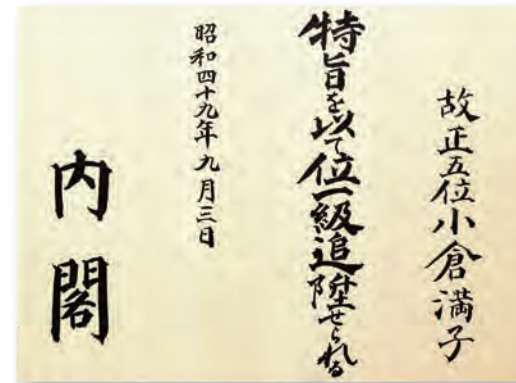 故正五位小倉満子
特旨を以て位一級追陞せられる
昭和四十九年九月三日
内閣